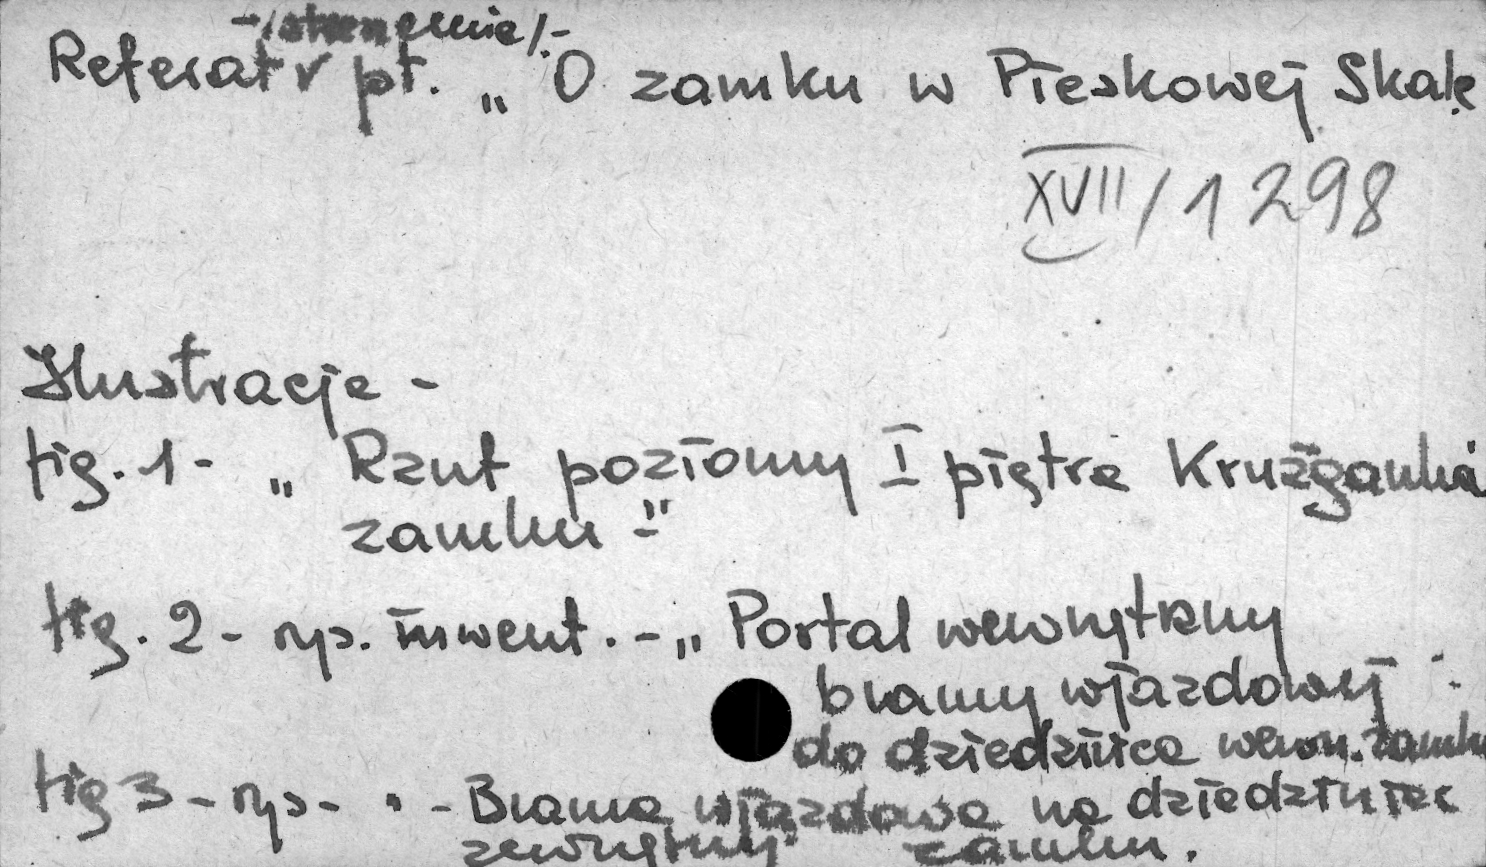 Referat v pt. „ O zamku w Pieskowej Skale
XVII/1298
Ilustracje -
fig. 1 - „ Rzut poziomy I piętra Krużganka
zamku -"
fig. 2 - rys. inwent. - „ Portal wewnętrzny
bramy wjazdowej
do dziedzińca wewn. zamku
fig 3 - rys - " - Brama wjazdowa na dziedziniec
zewnętrzny zamku.